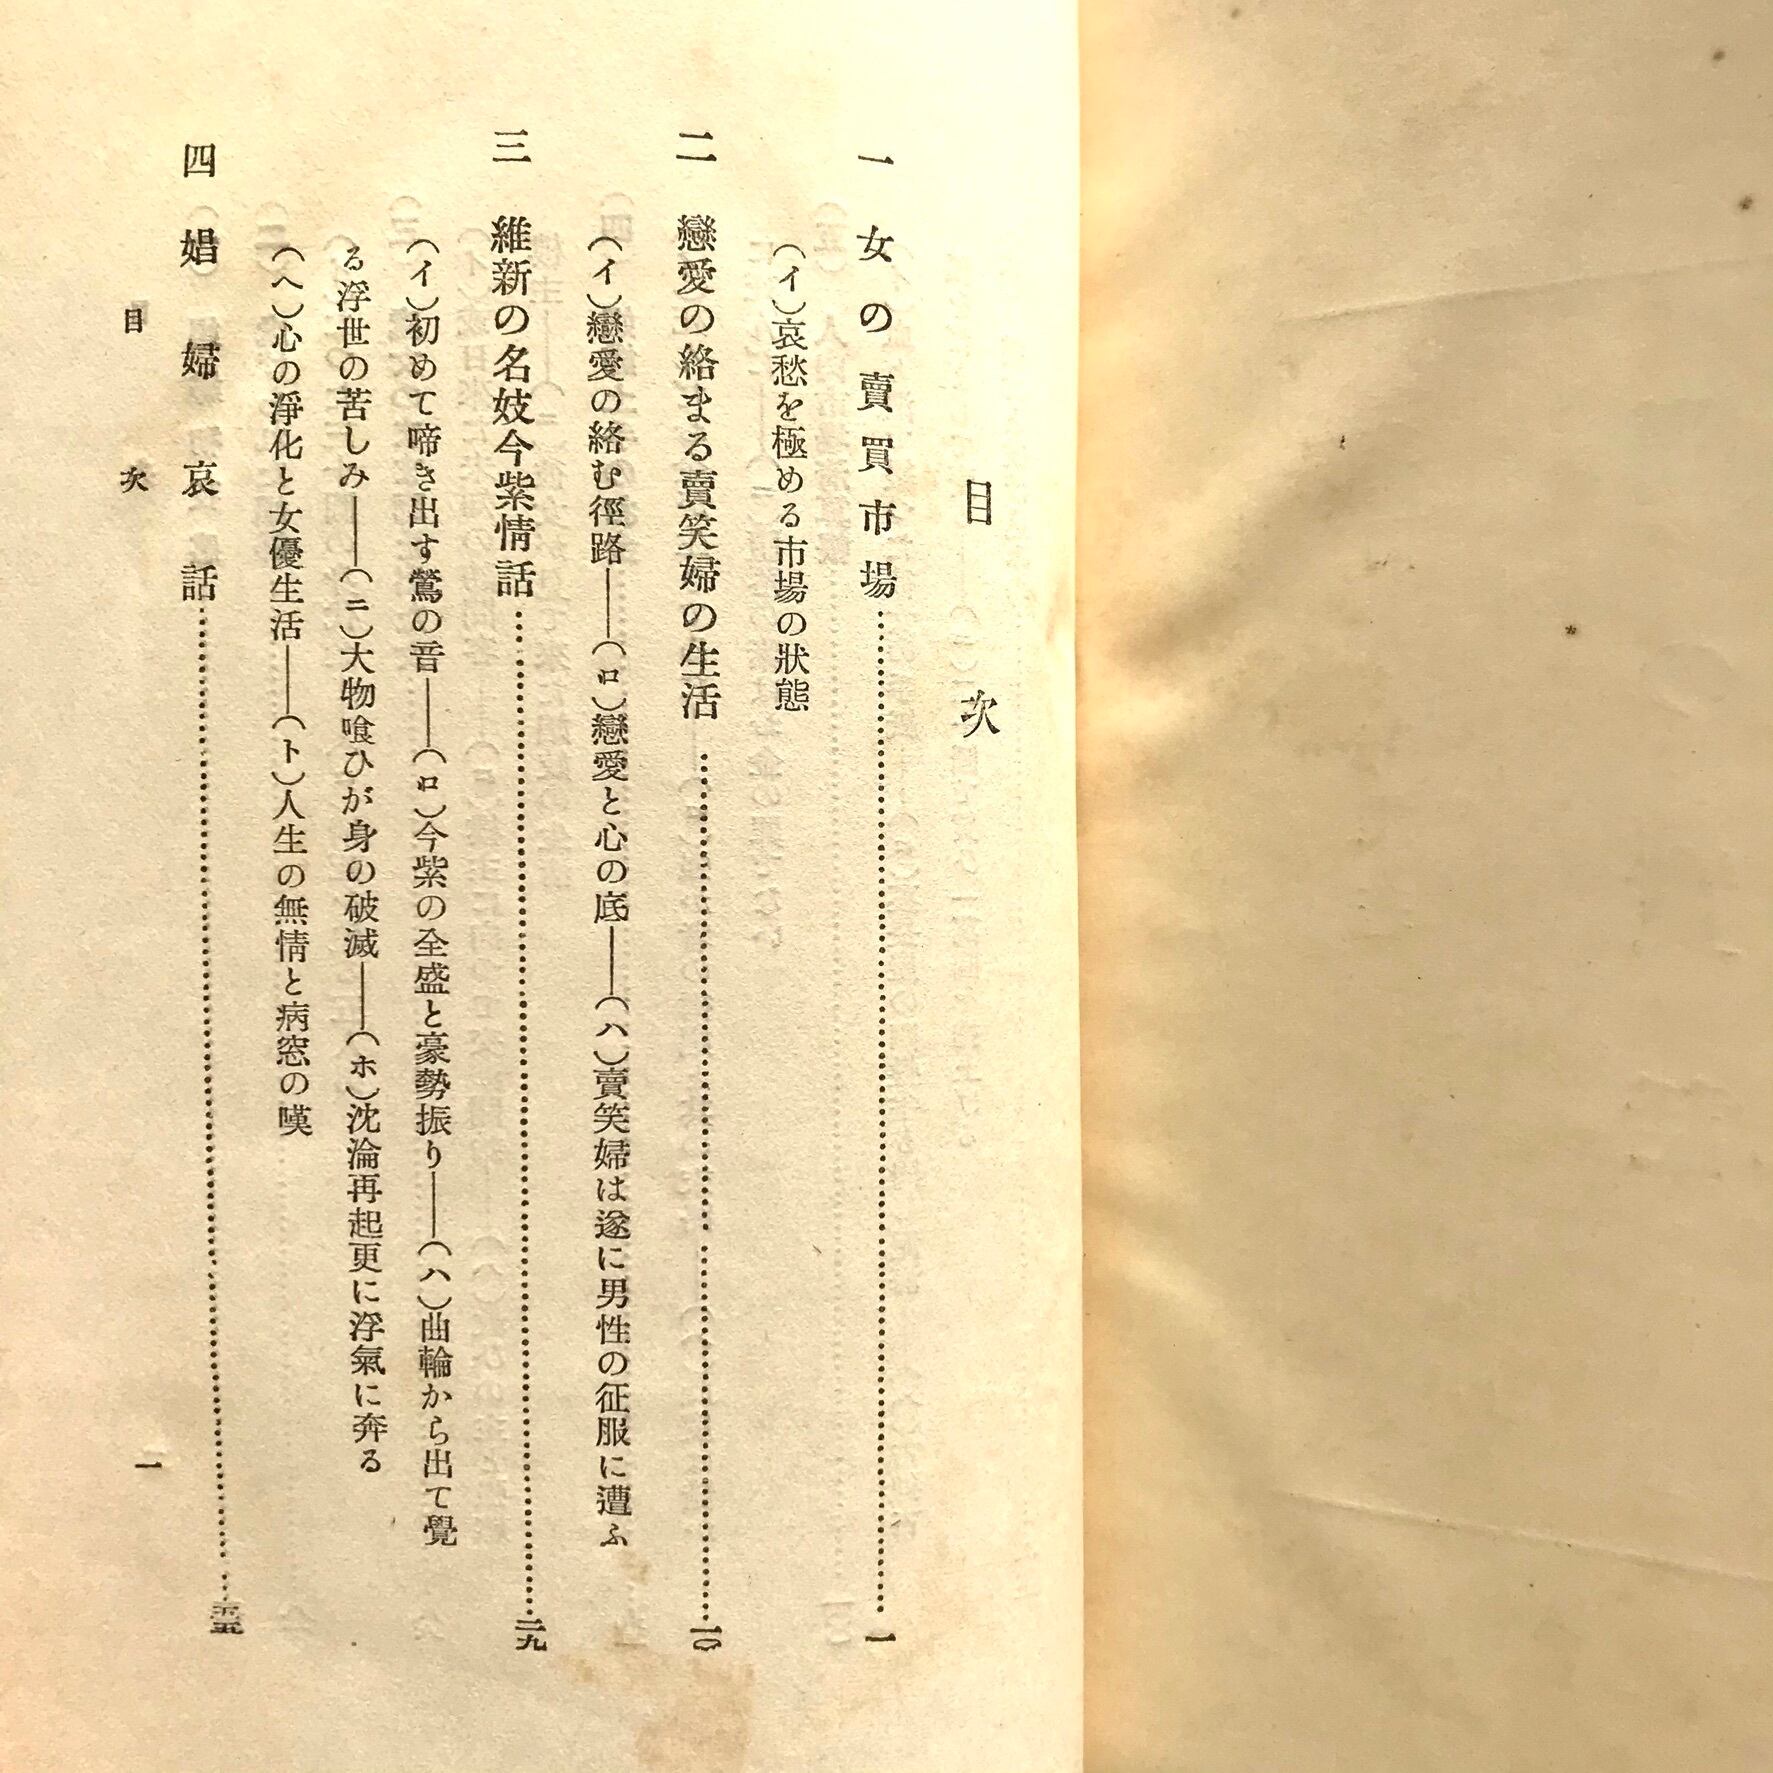 目次
一 女の賣買市場……一
(イ)哀愁を極める市場の狀態
二 戀愛の絡まる賣笑婦の生活……一〇
(イ)戀愛の絡む徑路――(ロ)戀愛と心の底――(ハ)賣笑婦は遂に男性の征服に遭ふ
三 維新の名妓今紫情話……二九
(イ)初めて啼き出す鶯の音――(ロ)今紫の全盛と豪勢振り――(ハ)曲輪から出て覺
る浮世の苦しみ――(ニ)大物喰ひが身の破滅――(ホ)沈淪再起更に浮氣に奔る
(ヘ)心の淨化と女優生活――(ト)人生の無情と病窓の嘆
四 娼婦哀話……五五
目次 一